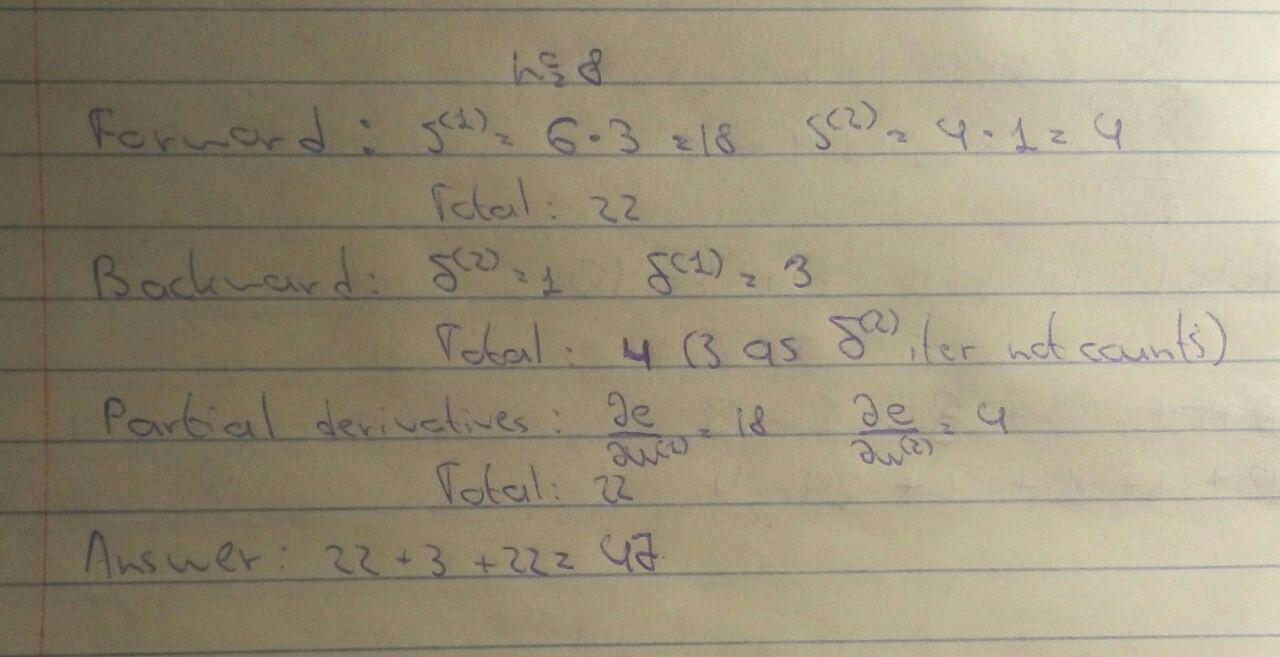 № 8
Forward: S⁽¹⁾ = 6 · 3 = 18 S⁽²⁾ = 4 · 1 = 4
Total: 22
Backward: δ⁽²⁾ = 1 δ⁽¹⁾ = 3
Total: 4 (3 as δ⁽²⁾ not counts)
Partial derivatives: ∂e/∂w⁽¹⁾ = 18 ∂e/∂w⁽²⁾ = 4
Total: 22
Answer: 22 + 3 + 22 = 47